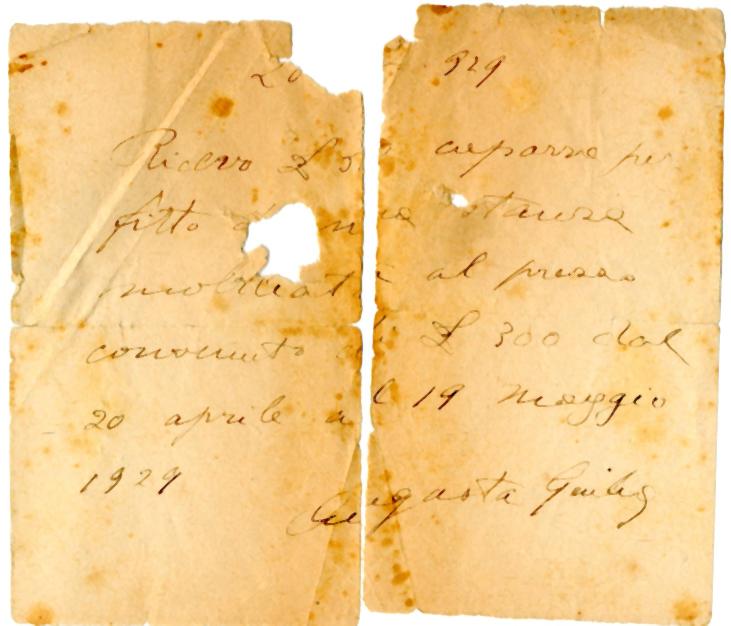 20 929
Ricevo L 50 caparra per
fitto d'una stanza
mobiliata al prezzo
convenuto di L 300 dal
20 aprile al 19 maggio
1929
Augusta